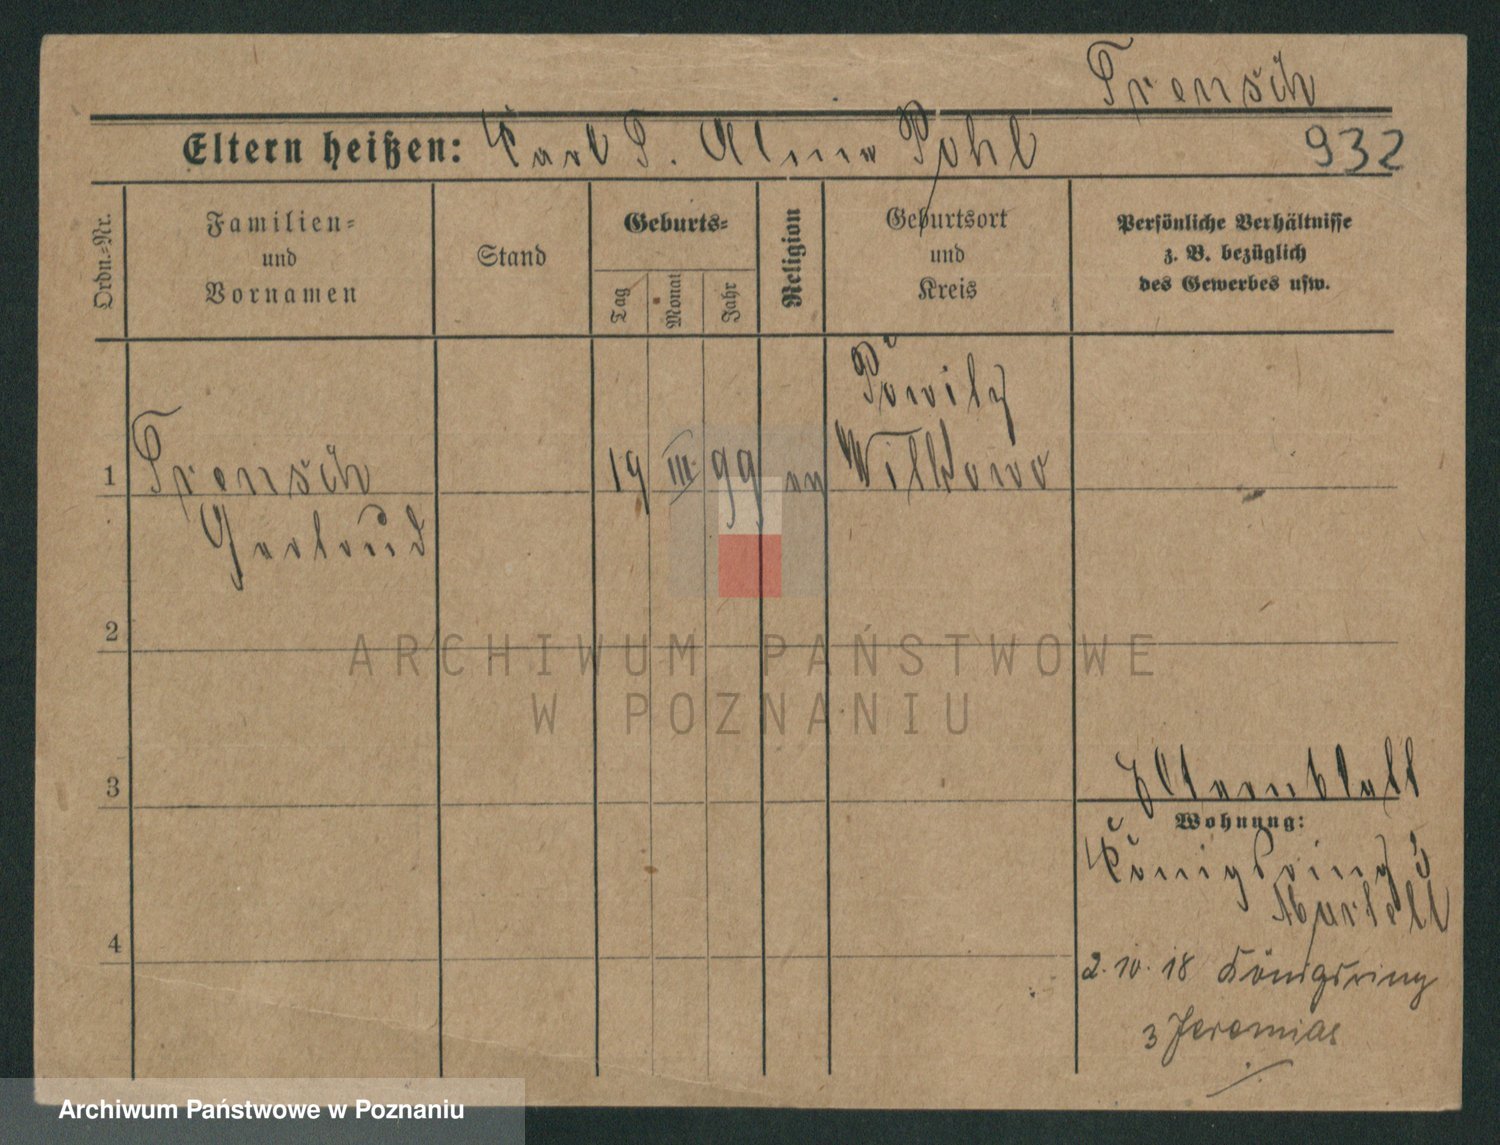 Trensch
Eltern heißen: Karl T. Alma Pohl
932
Ordn.-Nr.
Familien-
und
Vornamen
Stand
Geburts-
Tag
Monat
Jahr
Religion
Geburtsort
und
Kreis
Persönliche Verhältnisse
z. B. bezüglich
des Gewerbes usw.
Powitz
1 Trensch 19 III. 99 ev Witkowo
Gertrud
2
ARCHIWUM PAŃSTWOWE
W POZNANIU
3
Elternblatt
Wohnung:
Königsring 3
4
2.10.18 Königsring
3 Jeremias
Archiwum Państwowe w Poznaniu